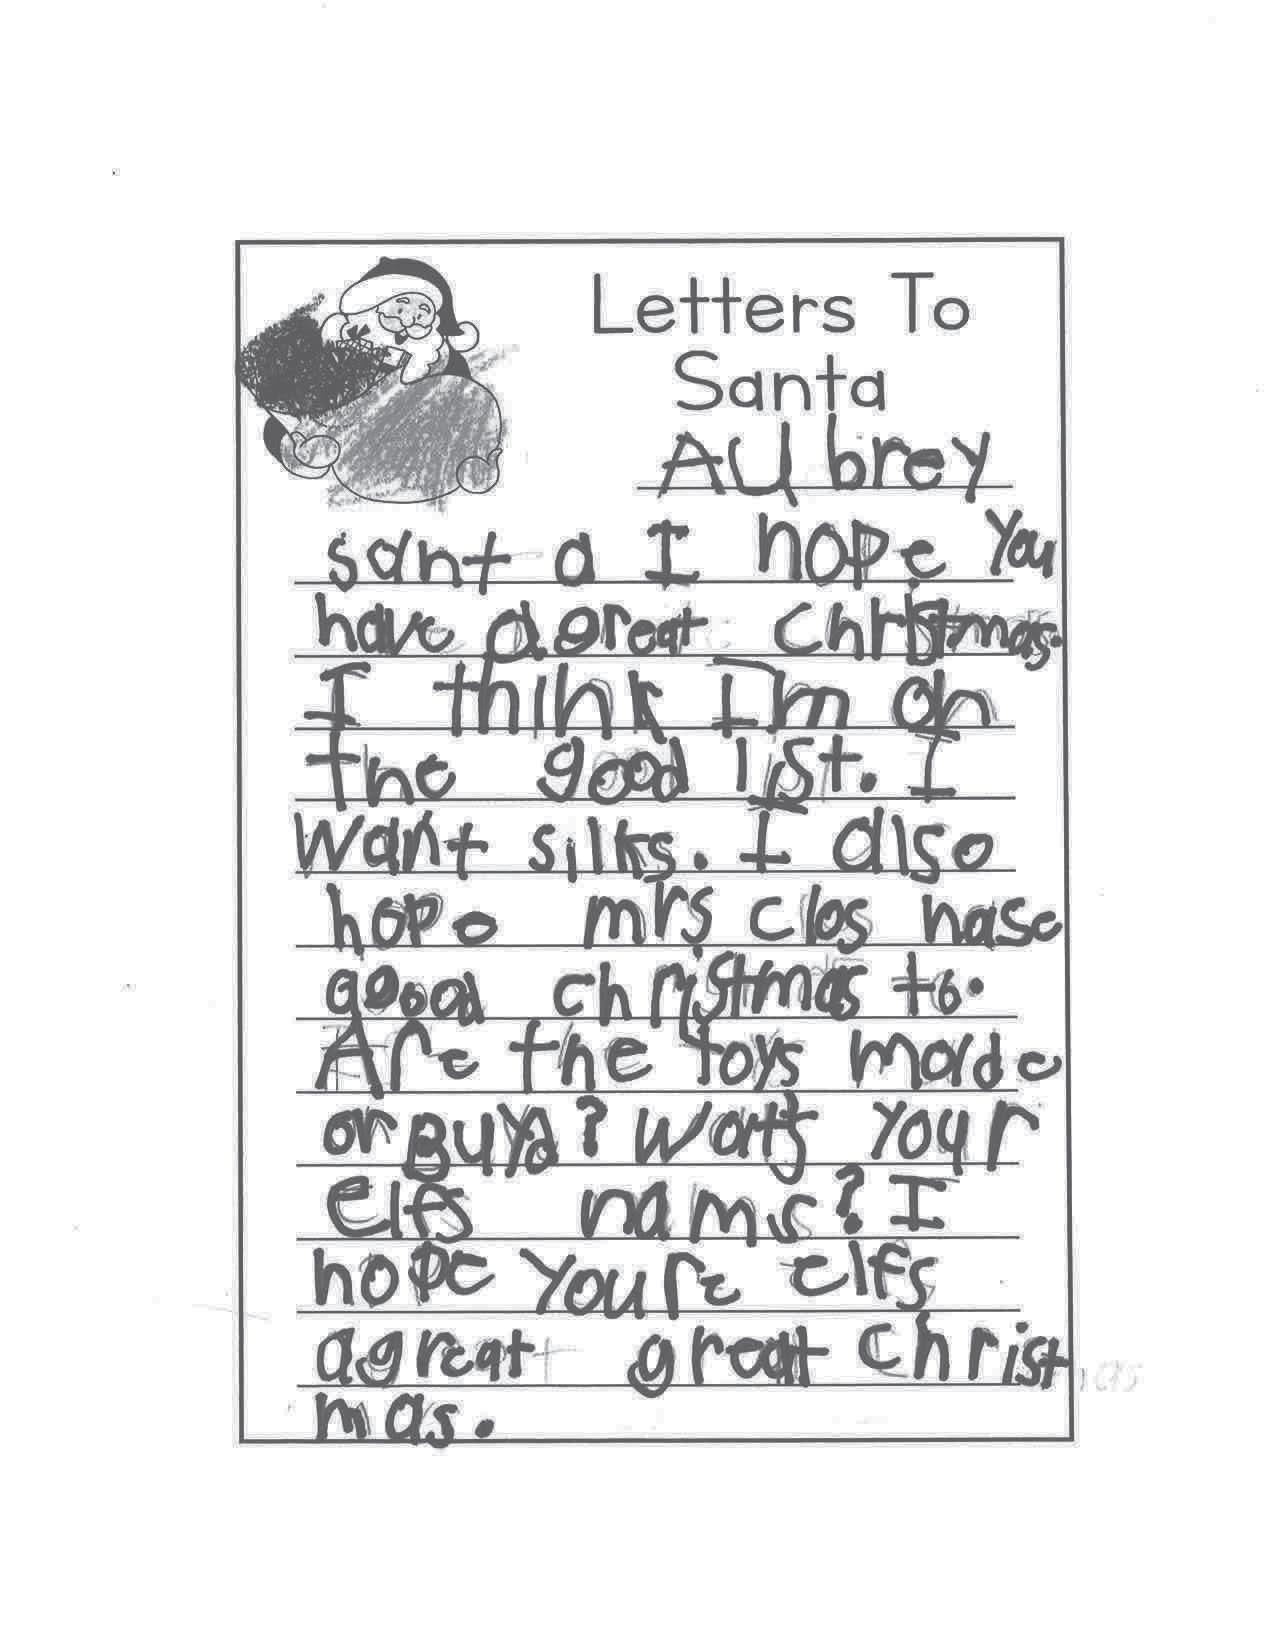 Letters To
Santa
AUbrey
santa I hope you
have a great christmas.
I think I'm on
the good list. I
want silks. I also
hope mrs clos hase
agood christmas to.
Are the toys made
or Buyd? wats your
elfs nams? I
hope youre elfs
agreat great christ
mas.